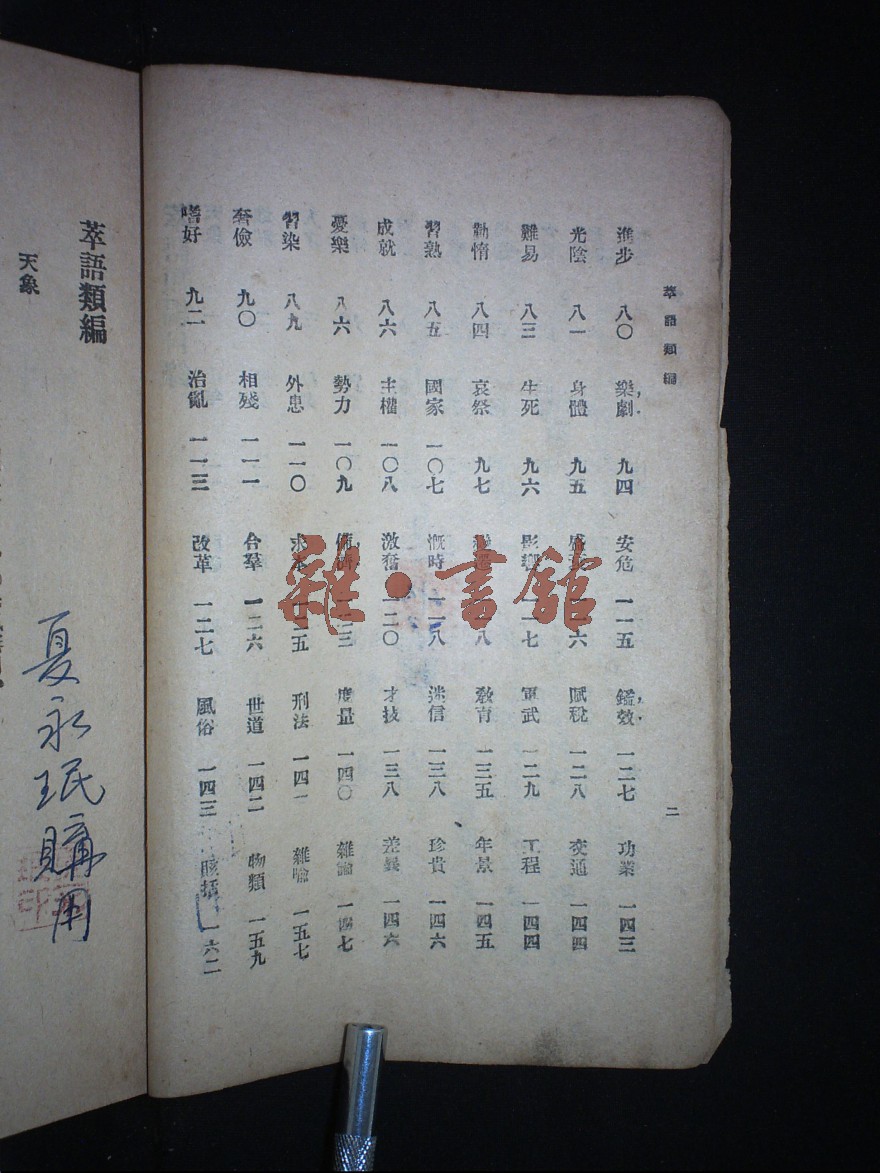 萃語類編
二
進步 八〇 樂劇 九四 安危 一一五 鑑效 一二七 功業 一四三
光陰 八一 身體 九五 一一六 賦稅 一二八 交通 一四四
難易 八三 生死 九六 影響 一一七 軍武 一二九 工程 一四四
勤惰 八四 哀祭 九七 變遷 一一八 教育 一三五 年景 一四五
習熟 八五 國家 一〇七 慨時 一一八 迷信 一三八 珍貴 一四六
成就 八六 主權 一〇八 激奮 一二〇 才技 一三八 差異 一四六
憂樂 八六 勢力 一〇九 備 一二三 度量 一四〇 雜論 一四七
習染 八九 外患 一一〇 求 一二五 刑法 一四一 雜喻 一五七
奢儉 九〇 相殘 一一一 合羣 一二六 世道 一四二 物類 一五九
嗜好 九二 治亂 一一三 改革 一二七 風俗 一四三 賅括 一六二
雜·書館
萃語類編
天象
夏永珉購用